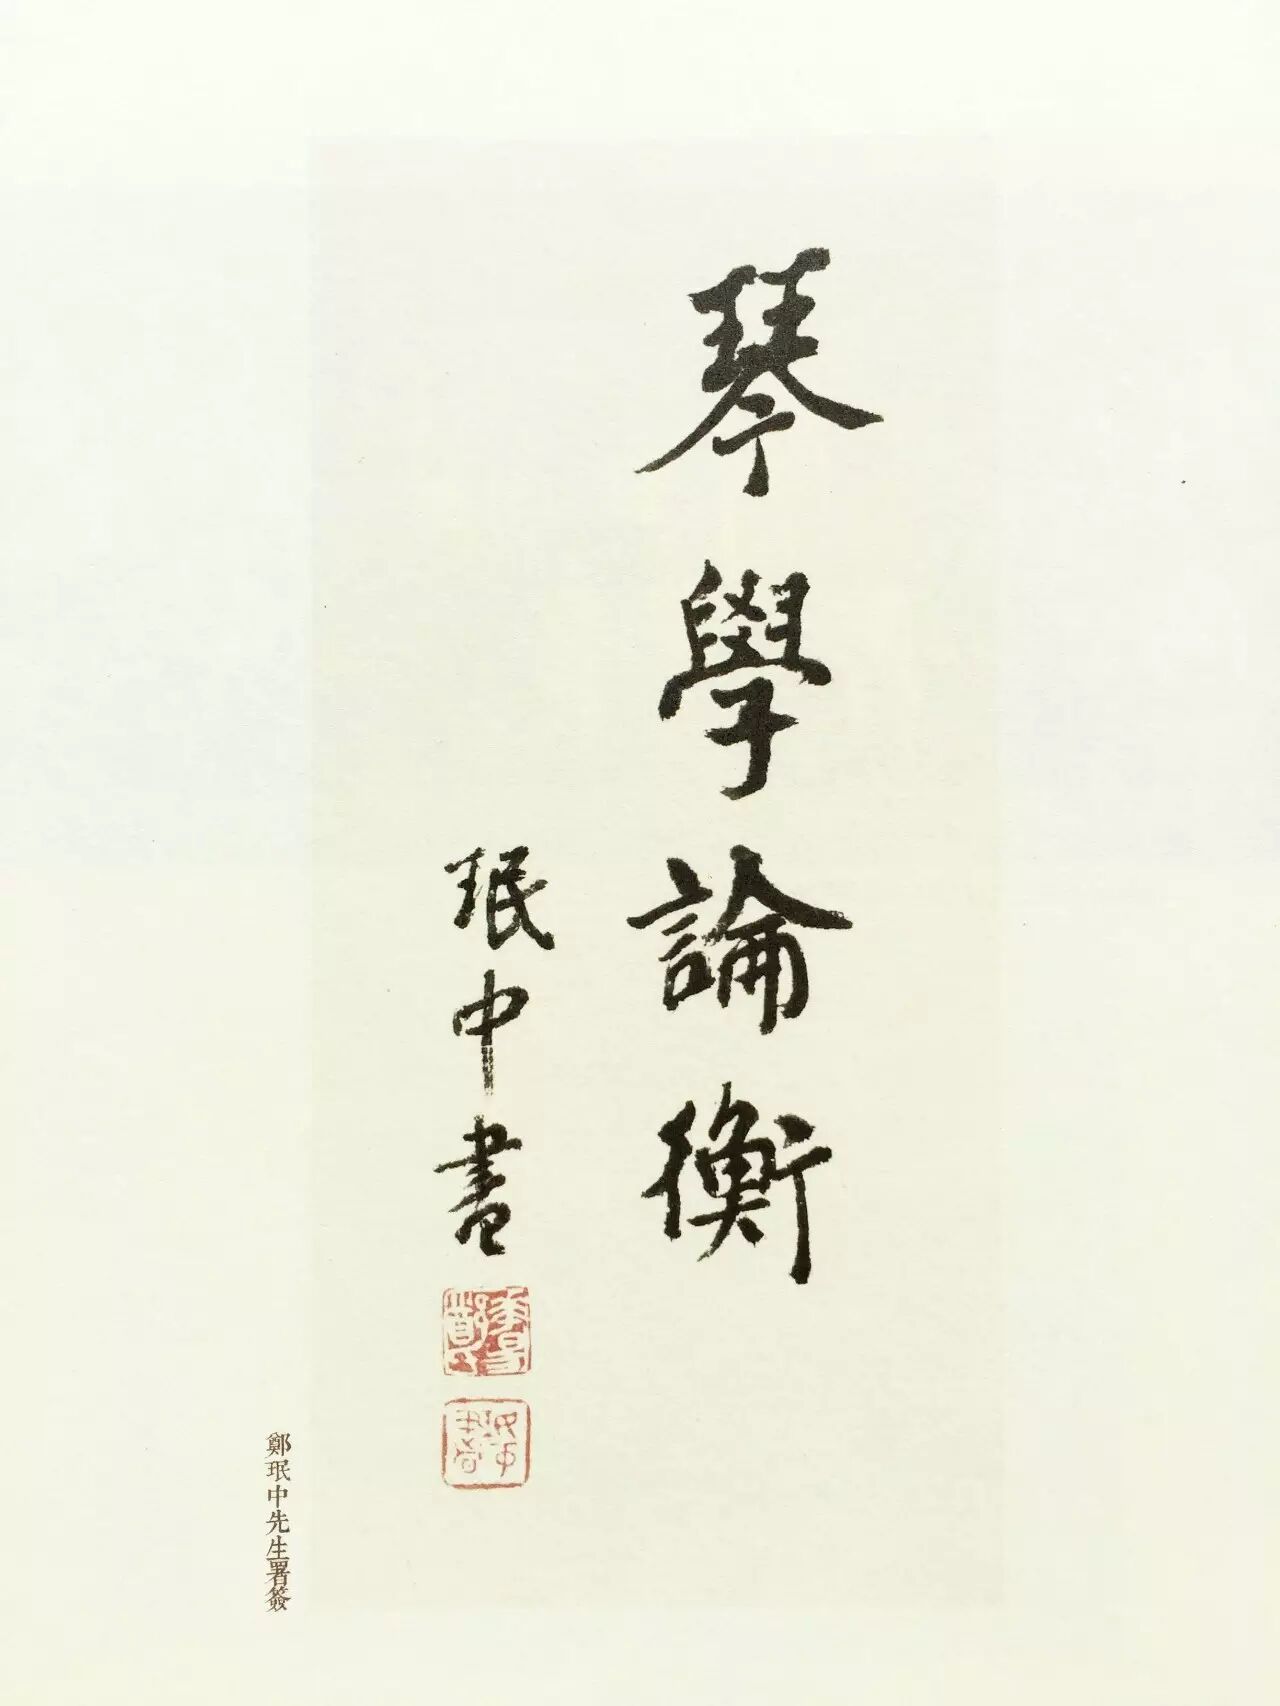 琴學論衡
珉中書
鄭珉中先生署簽